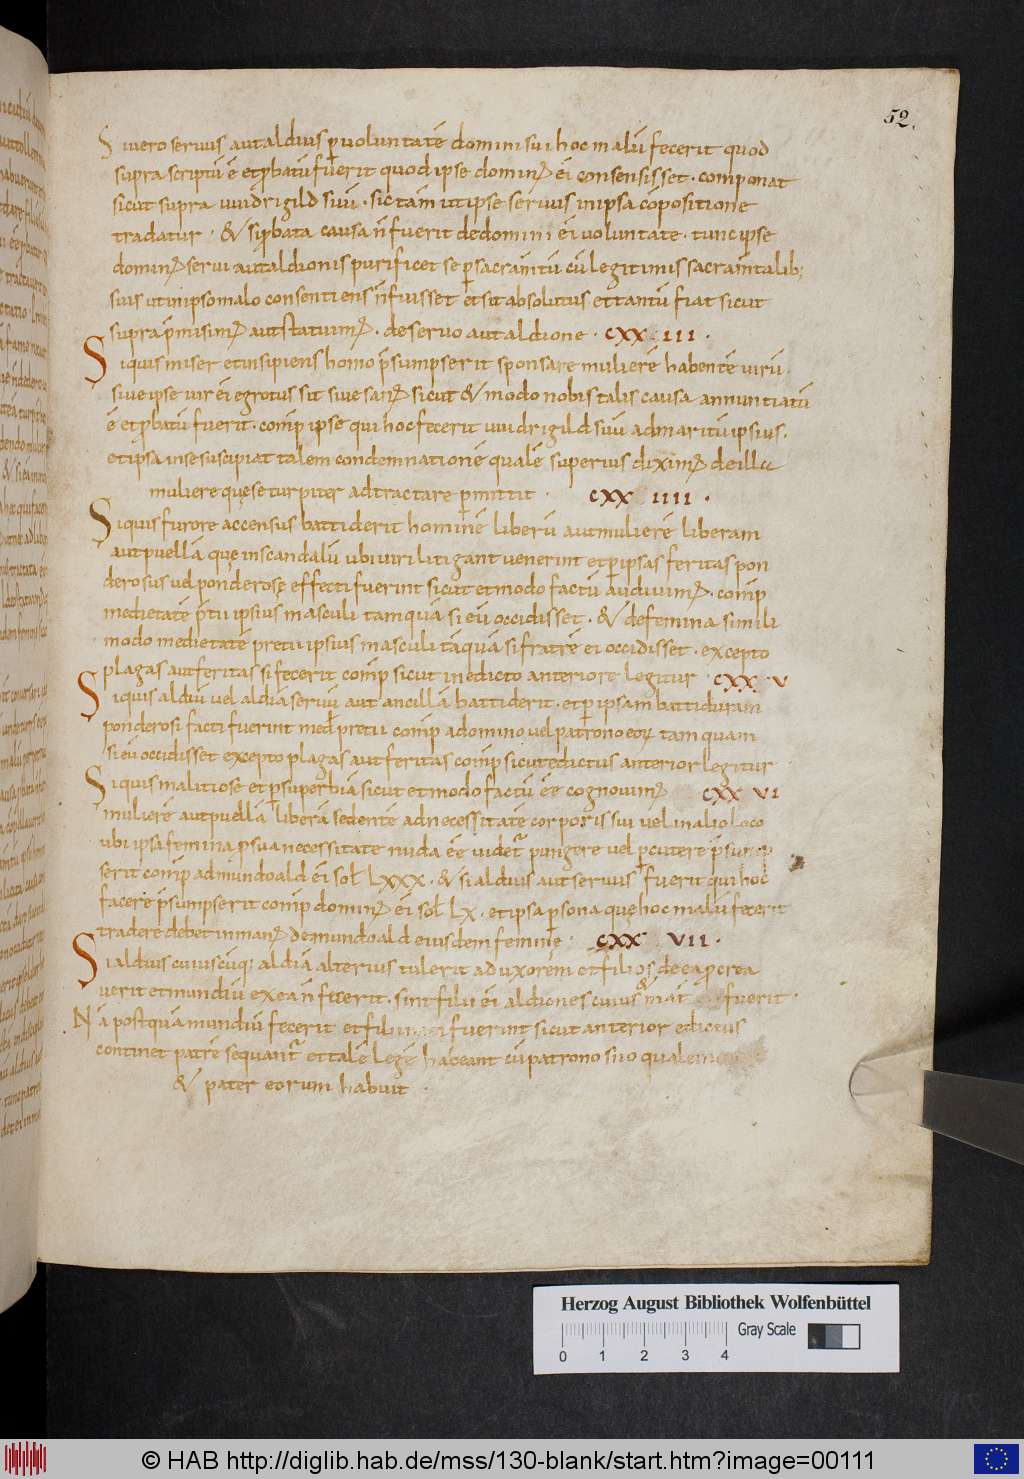 52.
Si uero seruus aut aldius p uoluntatē domini sui hoc malū fecerit quod
supra scriptū ē et pbatū fuerit quod ipse domin; ei consensisset · componat
sicut supra uuidrigild suū · sic tam ut ipse seruus in ipsa copositione
tradatur · & si pbata causa n̄ fuerit de domini ei uoluntate · tunc ipse
domin; serui aut aldionis purificet se p sacramtū cū legitimis sacramtalib;
suis ut in ipso malo consentiens n̄ fuisset et sit absolutus et tantū fiat sicut
supra p̄misim; aut statuim; · de seruo aut aldione · CXX III ·
Si quis miser et insipiens homo p̄sumpserit sponsare mulierē habentē uirū ·
siue ipse uir ei egrotus sit siue san; sicut & modo nobis talis causa annuntiatū
ē et pbatū fuerit · comp ipse qui hoc fecerit uuidrigild suū ad maritū ipsius ·
et ipsa in se suscipiat talem condemnationē qualē superius dixim; de illa
muliere quę se turpiter adtractare pmittit · CXX IIII ·
Si quis furore accensus battiderit hominē liberū aut mulierē liberam
aut puellā quę in scandalū ubi uiri litigant uenerint et p ipsas feritas pon
derosus uel ponderose effecti fuerint sicut et modo factū audiuim; · comp
medietatē p̄tii ipsius masculi tamquā si eū occidisset · & de femina simili
modo medietatē pretii ipsius masculi tāquā si fratrē ei occidisset · excepto
plagas aut feritas si fecerit comp sicut in edicto anteriore legitur · CXX · V
Si quis aldiū uel aldiā seruū aut ancillā battiderit · et p ipsam battiduram
ponderosi facti fuerint med pretii comp a domino uel patrono eor tam quam
si eū occidisset excepto plagas aut feritas comp sicut edictus anterior legitur
Si quis malitiose et p superbiā sicut et modo factū ēē cognouim; CXX VI
mulierē aut puellā liberā sedentē ad necessitatē corporis sui uel in alio loco
ubi ipsa femina p sua necessitate nuda ēē uidet pungere uel pcutere p̄sump
serit comp ad mundoald ei sol LXXX · & si aldius aut seruus fuerit qui hoc
facere p̄sumpserit comp domin; ei sol LX · et ipsa psona que hoc malū fecerit
tradere debet in man; de mundoald eiusdem femine · CXX VII ·
Si aldius cuiuscūq; aldiā alterius tulerit ad uxorem et filios de ea pcrea
uerit et mundiū ex ea n̄ fecerit · sint filii ei aldiones cuius & mat fuerit ·
Nā postquā mundiū fecerit et filii fuerint sicut anterior edictus
continet patrē sequant et talē legē habeant cū patrono suo qualem
& pater eorum habuit ·
Herzog August Bibliothek Wolfenbüttel
Gray Scale
0 1 2 3 4
© HAB http://diglib.hab.de/mss/130-blank/start.htm?image=00111